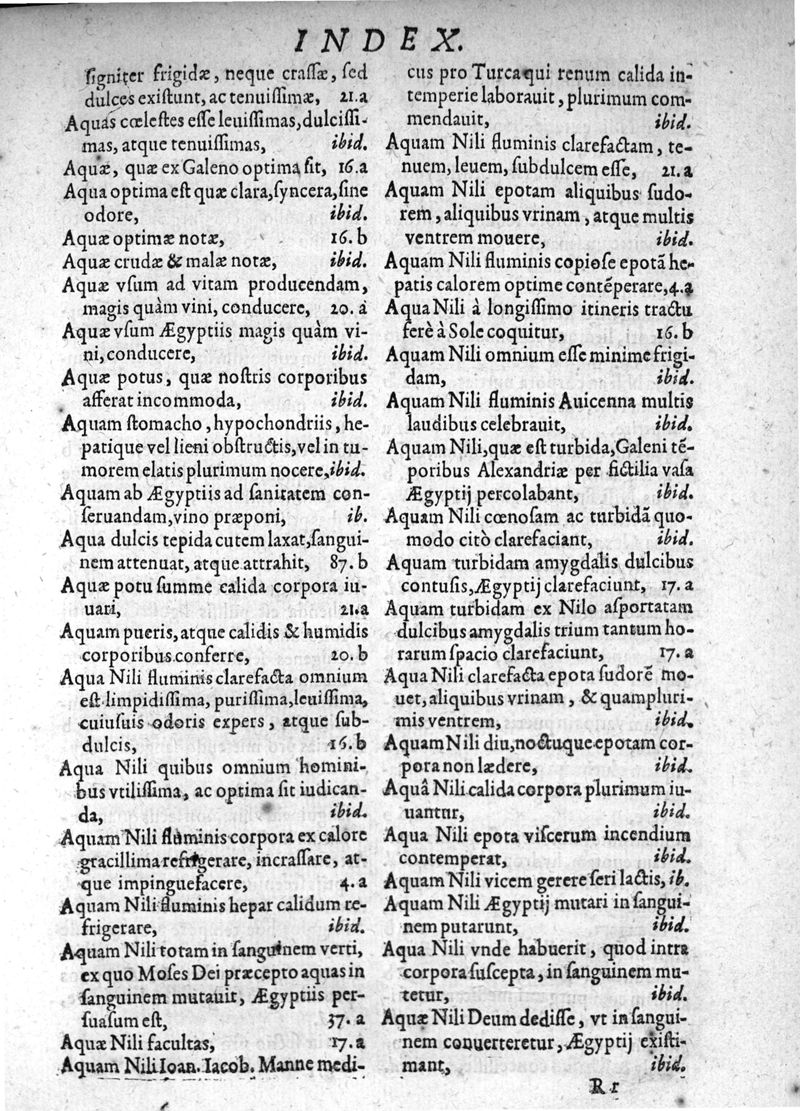 INDEX.
ſigniter frigidæ, neque craſſæ, ſed
dulces exiſtunt, ac tenuiſſimæ, 21.a
Aquas cœleſtes eſſe leuiſſimas, dulciſſi-
mas, atque tenuiſſimas, ibid.
Aquæ, quæ ex Galeno optima ſit, 16.a
Aqua optima eſt quæ clara, ſyncera, ſine
odore, ibid.
Aquæ optimæ notæ, 16.b
Aquæ crudæ & malæ notæ, ibid.
Aquæ vſum ad vitam producendam,
magis quàm vini, conducere, 20.a
Aquæ vſum Ægyptiis magis quàm vi-
ni, conducere, ibid.
Aquæ potus, quæ noſtris corporibus
afferat incommoda, ibid.
Aquam ſtomacho, hypochondriis, he-
patique vel lieni obſtructis, vel in tu-
morem elatis plurimum nocere, ibid.
Aquam ab Ægyptiis ad ſanitatem con-
ſeruandam, vino præponi, ib.
Aqua dulcis tepida cutem laxat, ſangui-
nem attenuat, atque attrahit, 87.b
Aquæ potu ſumme calida corpora iu-
uari, 21.a
Aquam pueris, atque calidis & humidis
corporibus conferre, 20.b
Aqua Nili fluminis clarefacta omnium
eſt limpidiſſima, puriſſima, leuiſſima,
cuiuſuis odoris expers, atque ſub-
dulcis, 16.b
Aqua Nili quibus omnium homini-
bus vtiliſſima, ac optima ſit iudican-
da, ibid.
Aquam Nili fluminis corpora ex calore
gracillima refrigerare, incraſſare, at-
que impinguefacere, 4.a
Aquam Nili fluminis hepar calidum re-
frigerare, ibid.
Aquam Nili totam in ſanguinem verti,
ex quo Moſes Dei præcepto aquas in
ſanguinem mutauit, Ægyptiis per-
ſuaſum eſt, 37.a
Aquæ Nili facultas, 17.a
Aquam Nili Ioan. Iacob. Manne medi-
cus pro Turca qui renum calida in-
temperie laborauit, plurimum com-
mendauit, ibid.
Aquam Nili fluminis clarefactam, te-
nuem, leuem, ſubdulcem eſſe, 21.a
Aquam Nili epotam aliquibus ſudo-
rem, aliquibus vrinam, atque multis
ventrem mouere, ibid.
Aquam Nili fluminis copioſe epotã he-
patis calorem optime contẽperare, 4.a
Aqua Nili à longiſſimo itineris tractu
ferè à Sole coquitur, 16.b
Aquam Nili omnium eſſe minime frigi-
dam, ibid.
Aquam Nili fluminis Auicenna multis
laudibus celebrauit, ibid.
Aquam Nili, quæ eſt turbida, Galeni tẽ-
poribus Alexandriæ per fictilia vaſa
Ægyptij percolabant, ibid.
Aquam Nili cœnoſam ac turbidã quo-
modo citò clarefaciant, ibid.
Aquam turbidam amygdalis dulcibus
contuſis, Ægyptij clarefaciunt, 17.a
Aquam turbidam ex Nilo aſportatam
dulcibus amygdalis trium tantum ho-
rarum ſpacio clarefaciunt, 17.a
Aqua Nili clarefacta epota ſudorẽ mo-
uet, aliquibus vrinam, & quampluri-
mis ventrem, ibid.
Aquam Nili diu, noctuque epotam cor-
pora non lædere, ibid.
Aquâ Nili calida corpora plurimum iu-
uantur, ibid.
Aqua Nili epota viſcerum incendium
contemperat, ibid.
Aquam Nili vicem gerere ſeri lactis, ib.
Aquam Nili Ægyptij mutari in ſangui-
nem putarunt, ibid.
Aqua Nili vnde habuerit, quod intra
corpora ſuſcepta, in ſanguinem mu-
tetur, ibid.
Aquæ Nili Deum dediſſe, vt in ſangui-
nem conuerteretur, Ægyptij exiſti-
mant, ibid.
Rr